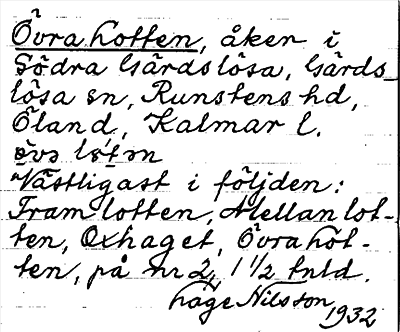 Övra Lotten, åker i
Södra Gärdslösa, Gärds-
lösa sn, Runstens hd,
Öland, Kalmar l.
Västligast i följden:
Framlotten, Mellanlot-
ten, Oxhaget, Övra Lot-
ten, på nr 2, 1 1/2 tnld.
Hage Nilsson 1932